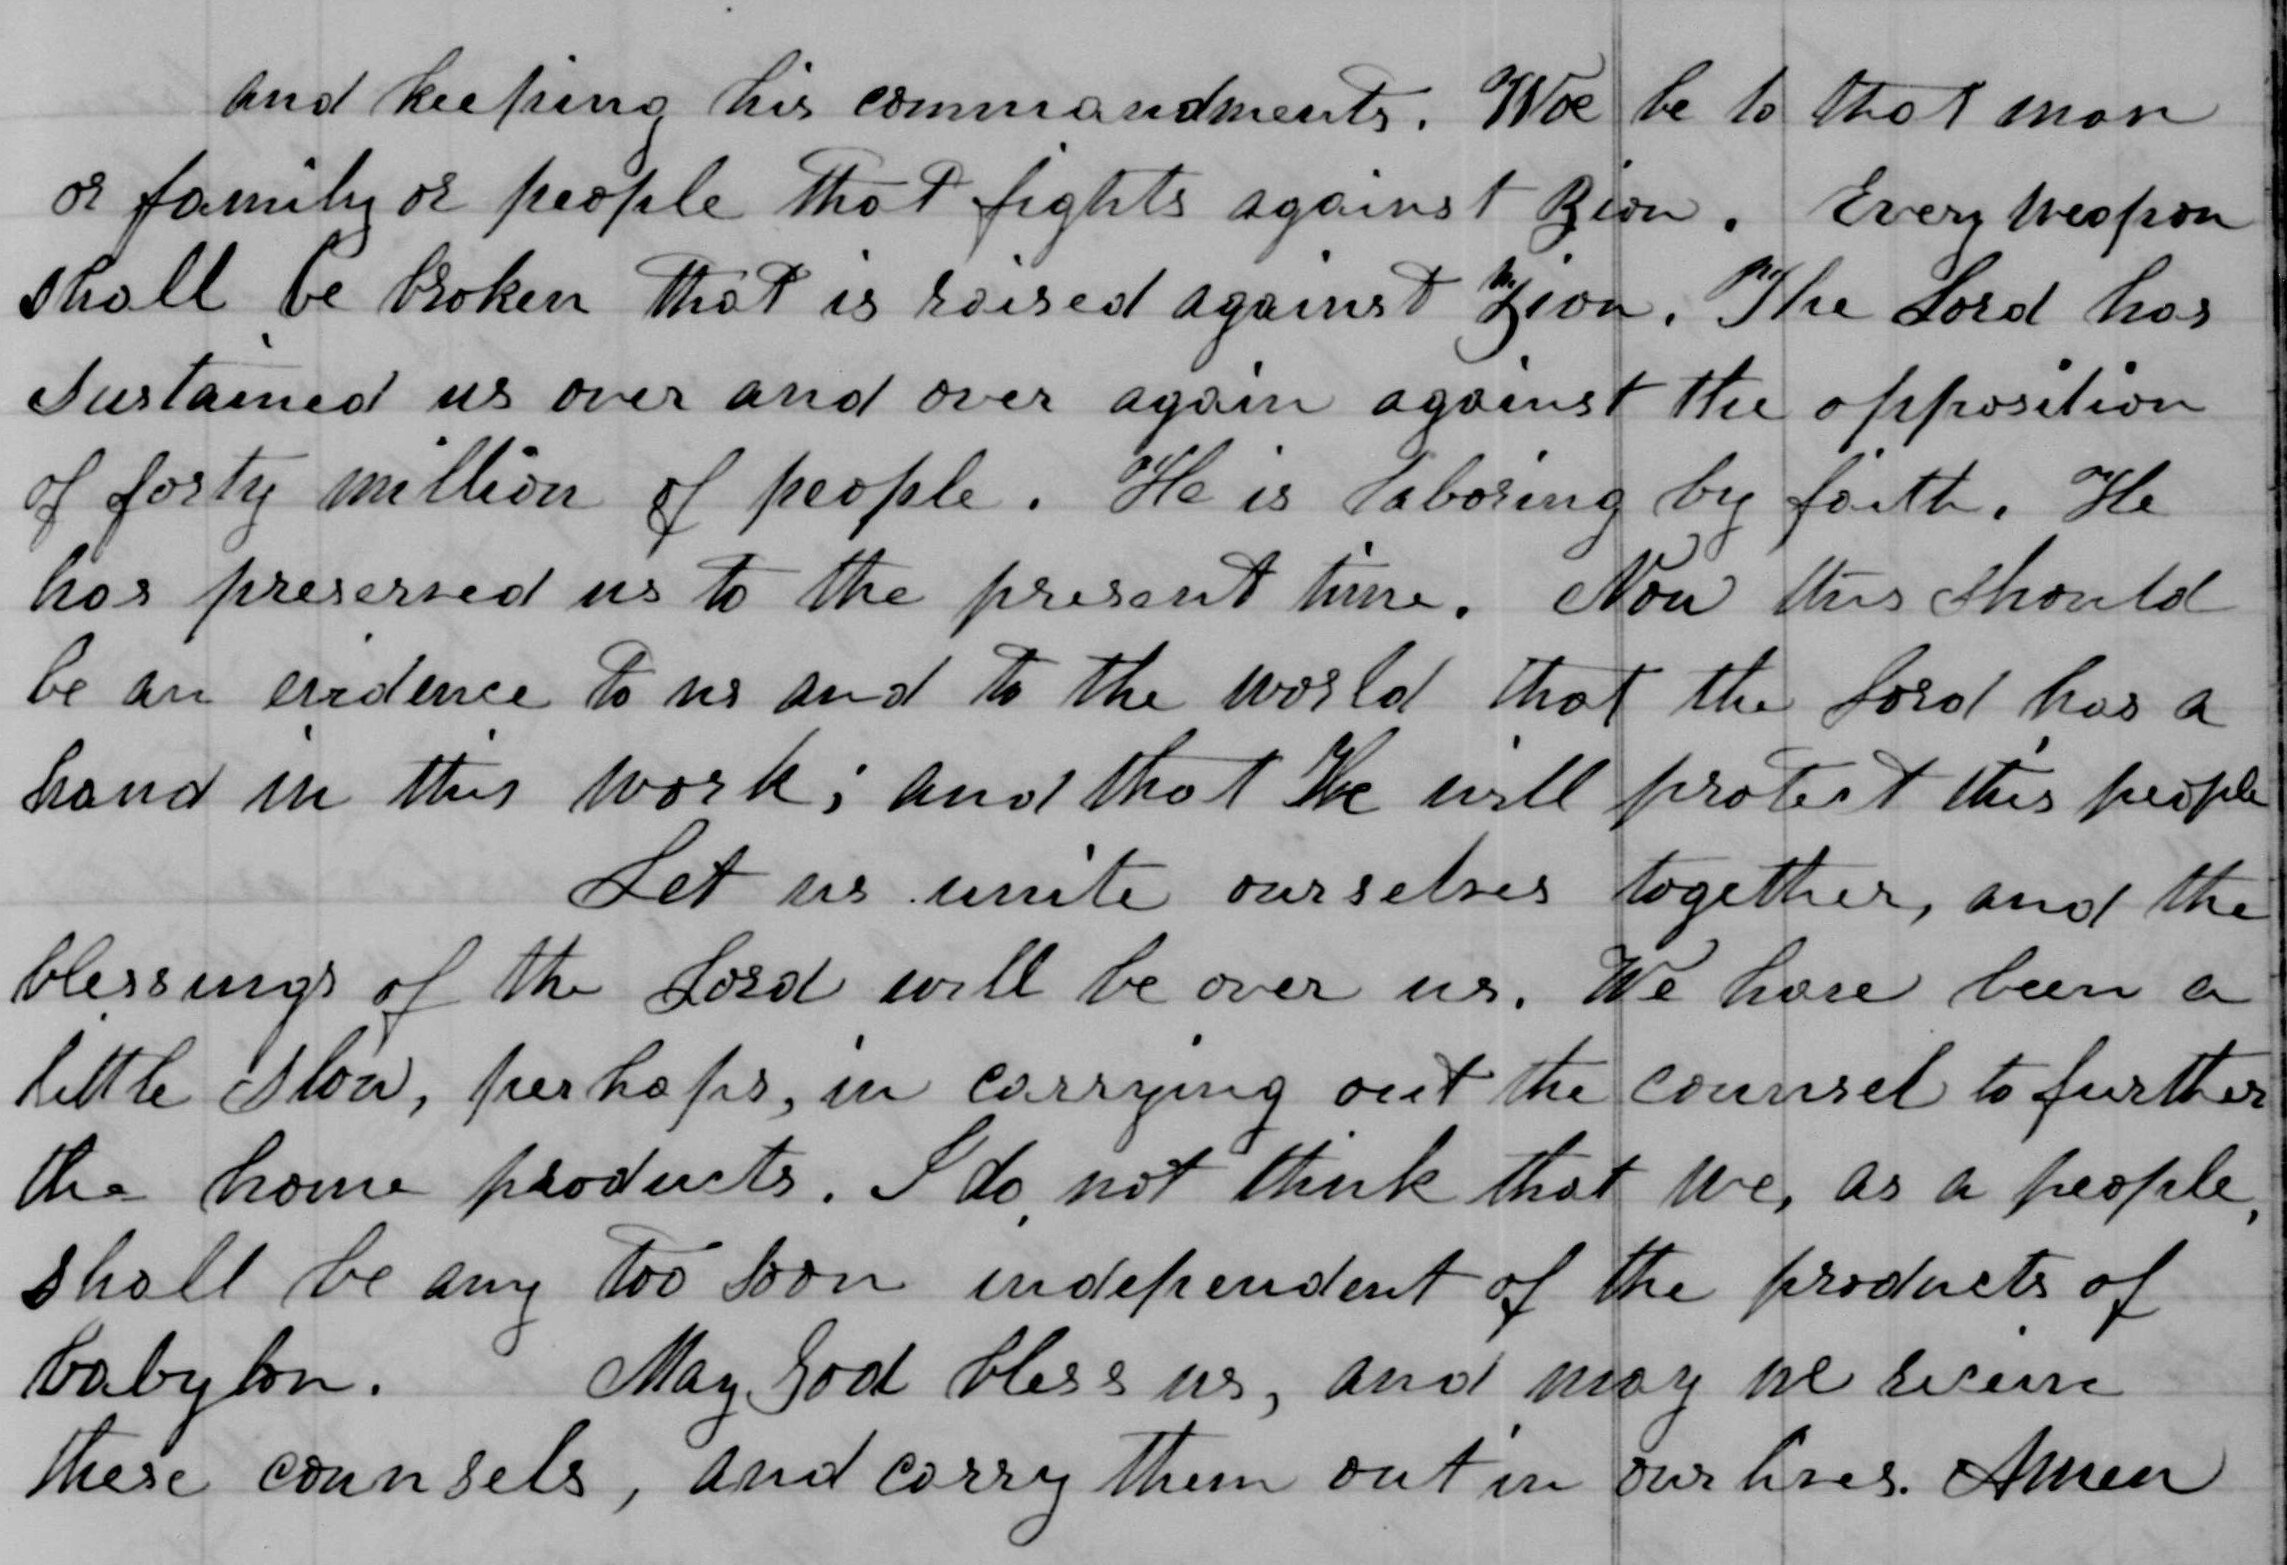 and keeping his commandments. Woe be to that man
or family or people that fights against Zion. Every weapon
shall be broken that is raised against Zion. The Lord has
sustained us over and over again against the opposition
of forty million of people. He is laboring by faith. He
has preserved us to the present time. Now this should
be an evidence to us and to the world that the Lord has a
hand in this work; and that He will protect this people
Let us unite ourselves together, and the
blessings of the Lord will be over us. We have been a
little slow, perhaps, in carrying out the counsel to further
the home products. I do not think that we, as a people,
shall be any too soon independent of the products of
babylon. May God bless us, and may we receive
these counsels, and carry them out in our lives. Amen